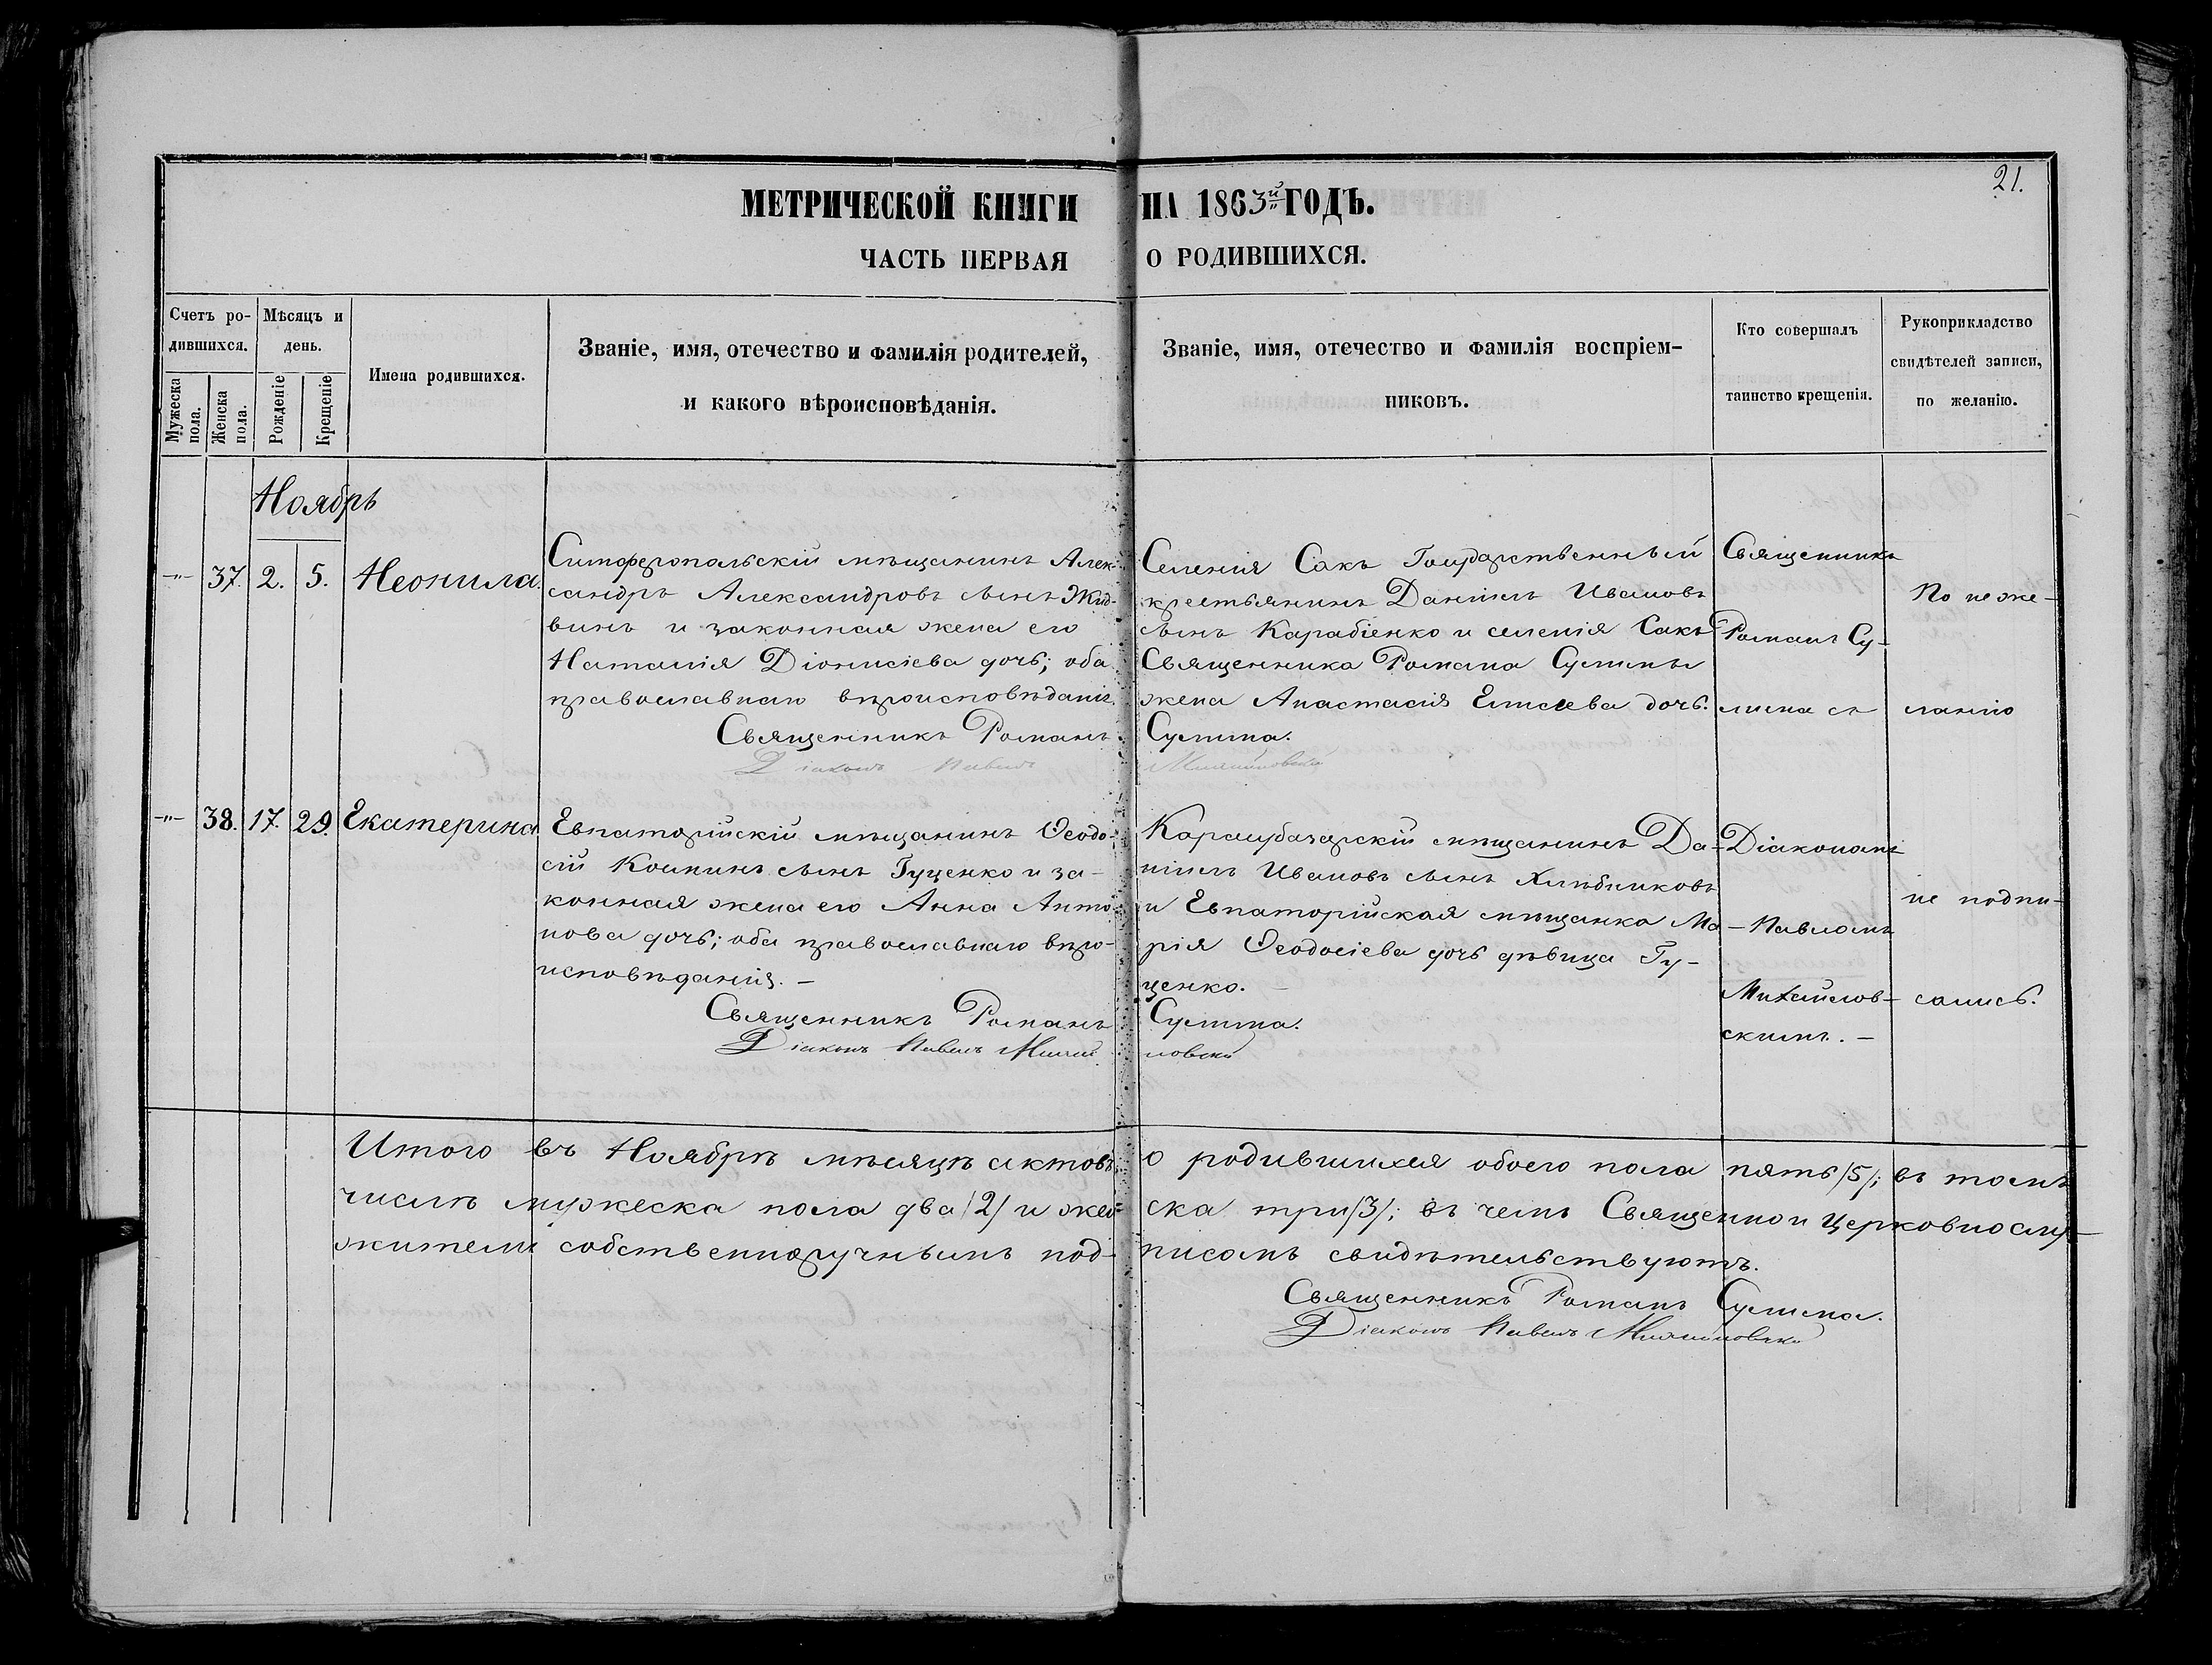 21.
МЕТРИЧЕСКОЙ КНИГИ НА 1863й ГОДЪ.
ЧАСТЬ ПЕРВАЯ О РОДИВШИХСЯ.
Счетъ ро-
дившихся.
Мужеска пола.
Женска пола.
Мѣсяцъ и
день.
Рожденіе
Крещеніе
Имена родившихся.
Званіе, имя, отечество и фамилія родителей,
и какого вѣроисповѣданія.
Званіе, имя, отечество и фамилія воспріем-
никовъ.
Кто совершалъ
таинство крещенія.
Рукоприкладство
свидѣтелей записи,
по желанію.
Ноябрь
-"- 37. 2. 5. Неонила.
Симферопольскій мѣщанинъ Алек-
сандръ Александровъ сынъ
винъ и законная жена его
Наталія Діонисіева дочь; оба
православнаго вѣроисповѣданія.
Селенія Сакъ Государственный
крестьянинъ Даніилъ Ивановъ
сынъ Карабіенко и селенія Сакъ
Священника Романа Сулимы
жена Анастасія Елисеева дочь.
Священникъ
Романъ Су-
лима съ
По не же-
ланію
Священникъ Романъ Сулима.
Діаконъ Павелъ
-"- 38. 17. 29. Екатерина
Евпаторійскій мѣщанинъ Ѳеодо-
сій Косминъ сынъ Гуценко и за-
конная жена его Анна Анто-
нова дочь; оба православнаго вѣро-
исповѣданія. -
Карасубазарскій мѣщанинъ Да-
ніилъ Ивановъ сынъ Хлѣбниковъ
и Евпаторійская мѣщанка Ма-
рія Ѳеодосіева дочь дѣвица Гу-
ценко. -
Діакономъ
- Павломъ
Михайлов-
скимъ. -
не подпи-
сались.
Священникъ Романъ Сулима.
Діаконъ Павелъ
Итого въ Ноябрѣ мѣсяцѣ актовъ о родившихся обоего пола пять /5/; въ томъ
числѣ мужеска пола два /2/ и жен- ска три /3/; въ чемъ Священно и церковнослу-
жители собственноручнымъ под- писомъ свидѣтельствуютъ.
Священникъ Романъ Сулима.
Діаконъ Павелъ